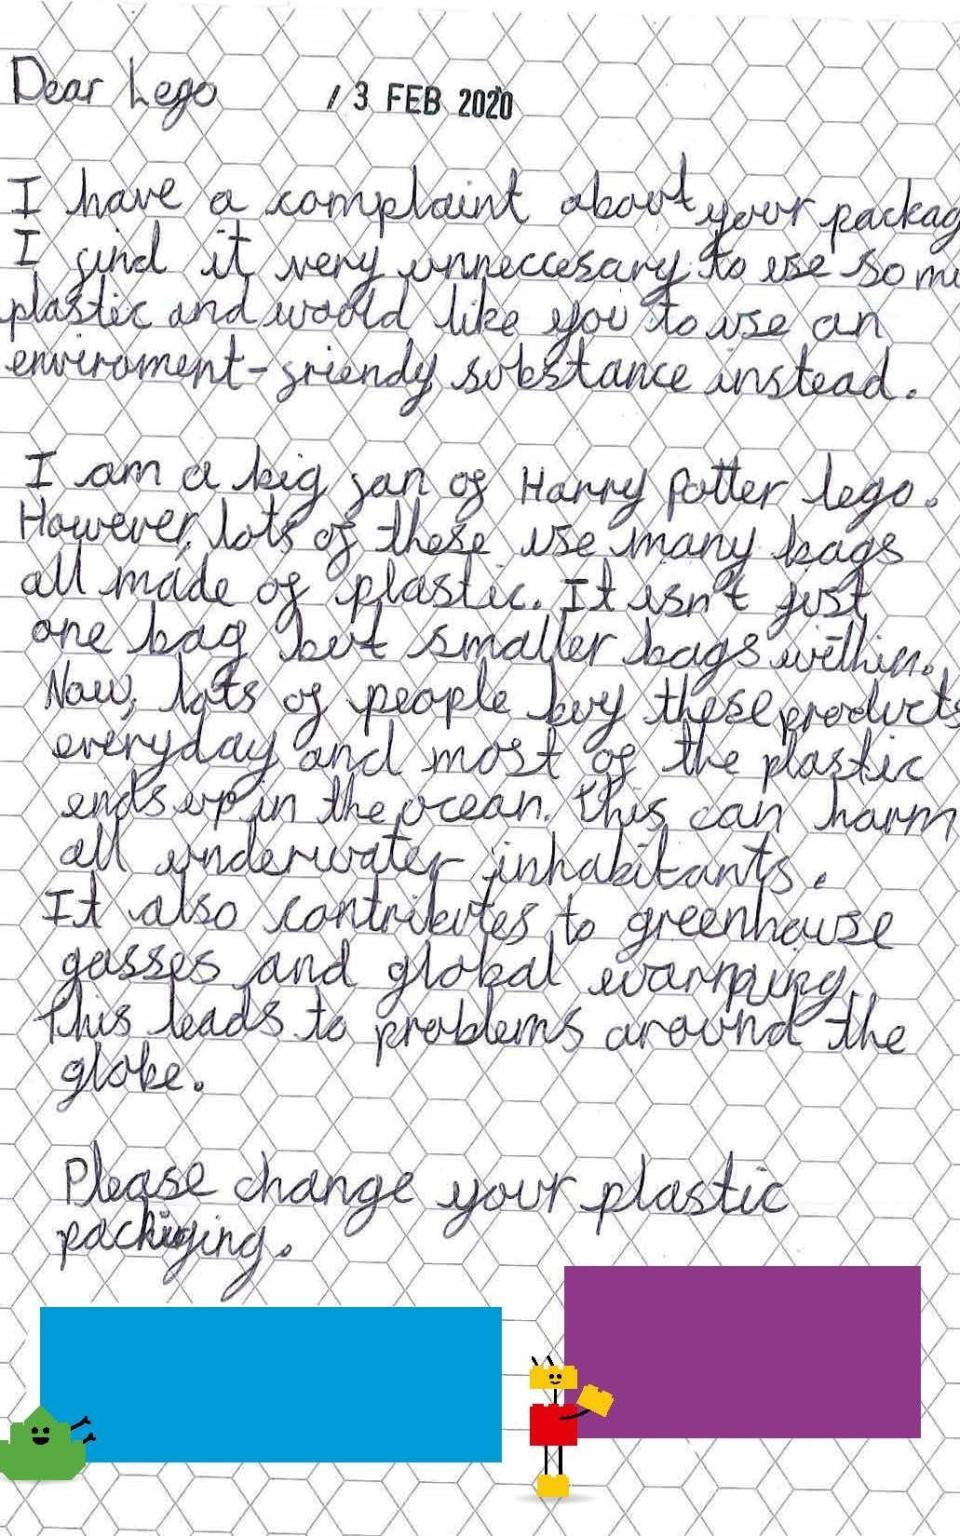 Dear Lego / 3 FEB 2020
I have a complaint about your packag
I find it very unneccesary to use so mu
plastic and would like you to use an
enviroment-friendy substance instead.
I am a big fan of Harry Potter lego.
However, lots of these use many bags
all made of plastic. It isn't just
one bag but smaller bags within.
Now, lots of people buy these products
everyday and most of the plastic
ends up in the ocean. This can harm
all underwater inhabitants.
It also contributes to greenhouse
gasses and global warming.
This leads to problems around the
globe.
Please change your plastic
packiging.